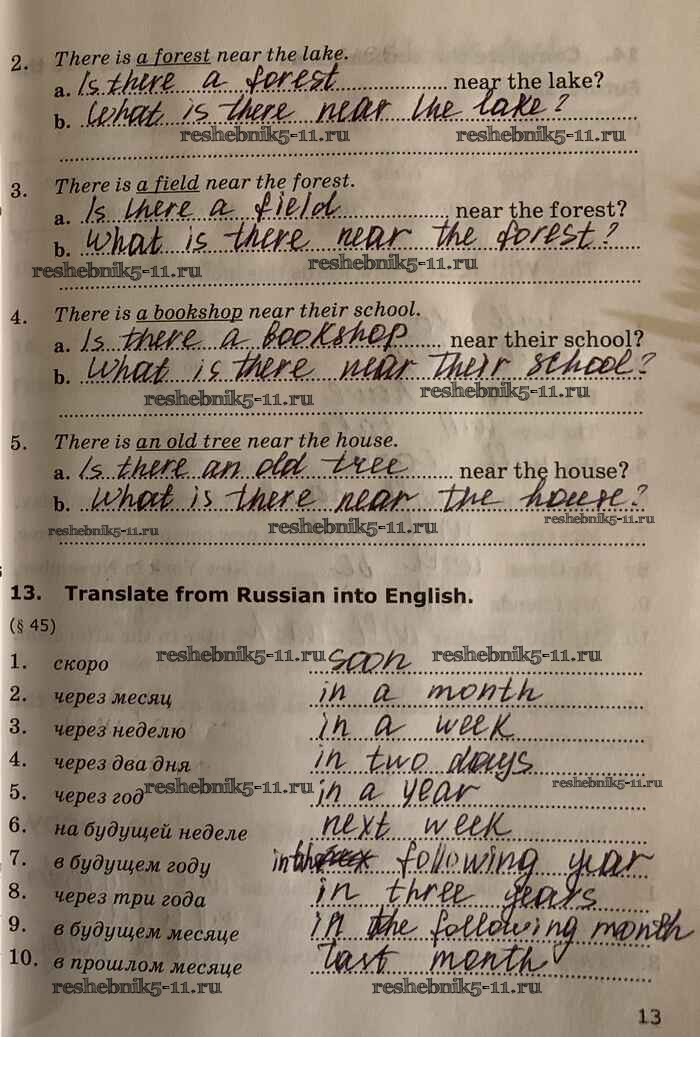 2. There is a forest near the lake.
a. Is there a forest near the lake?
b. What is there near the lake?
reshebnik5-11.ru reshebnik5-11.ru
3. There is a field near the forest.
a. Is there a field near the forest?
b. What is there near the forest?
reshebnik5-11.ru reshebnik5-11.ru
4. There is a bookshop near their school.
a. Is there a bookshop near their school?
b. What is there near their school?
reshebnik5-11.ru reshebnik5-11.ru
5. There is an old tree near the house.
a. Is there an old tree near the house?
b. What is there near the house?
reshebnik5-11.ru reshebnik5-11.ru reshebnik5-11.ru
13. Translate from Russian into English.
(§ 45)
1. скоро reshebnik5-11.ru soon reshebnik5-11.ru
2. через месяц in a month
3. через неделю in a week
4. через два дня in two days
5. через год reshebnik5-11.ru in a year reshebnik5-11.ru
6. на будущей неделе next week
7. в будущем году in the following year
8. через три года in three years
9. в будущем месяце in the following month
10. в прошлом месяце last month
reshebnik5-11.ru reshebnik5-11.ru
13